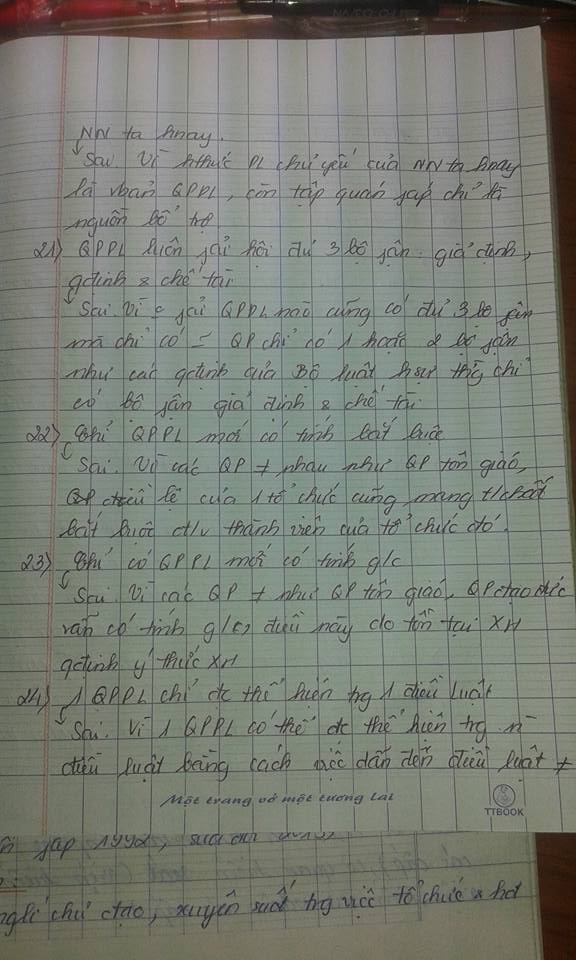 NN ta hnay.
Sai. Vì hthức PL chủ yếu của NN ta hnay
là vbản QPPL, còn tập quán jáp chỉ là
nguồn bổ trợ.
21) QPPL luôn jải hội đủ 3 bộ jận: giả định,
qđịnh & chế tài
Sai. Vì jải QPPL nào cũng có đủ 3 bộ jận
mà chỉ có QP chỉ có 1 hoặc 2 bộ jận
như các qđịnh của Bộ luật hsự thg chỉ
có bộ jận giả định & chế tài
22) Chỉ QPPL mới có tính bắt buộc
Sai. Vì các QP ≠ nhau như QP tôn giáo,
QP điều lệ của 1 tổ chức cũng mang t/chất
bắt buộc đ/v thành viên của tổ chức đó.
23) Chỉ có QPPL mới có tính g/c
Sai. Vì các QP ≠ như QP tôn giáo, QP đạo đức
vẫn có tính g/c, điều này do tồn tại XH
qđịnh ý thức XH
24) 1 QPPL chỉ đc thể hiện trg 1 điều luật
Sai. Vì 1 QPPL có thể đc thể hiện trg n
điều luật bằng cách việc dẫn đến điều luật ≠
Một trang vở một tương lai
TTBOOK
jáp 1992,
chỉ đạo, xuyên suốt trg việc tổ chức & hđ